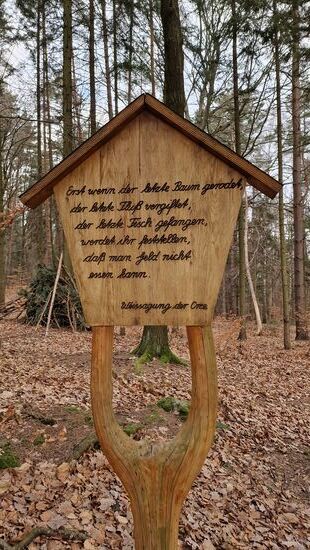 Erst wenn der letzte Baum gerodet,
der letzte Fluß vergiftet,
der letzte Fisch gefangen,
werdet ihr feststellen,
daß man Geld nicht
essen kann.
Weissagung der Cree